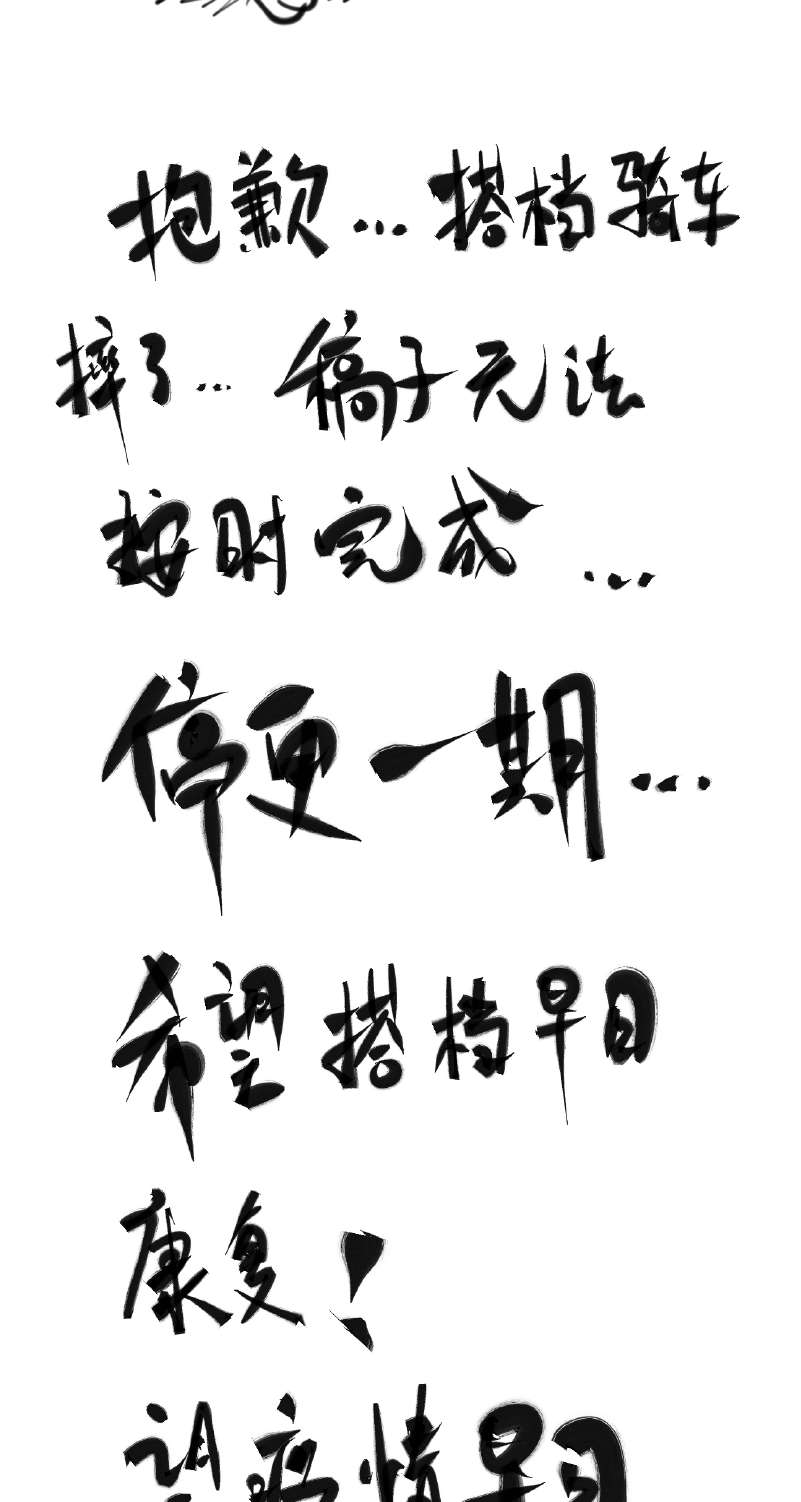 抱歉...搭档骑车
摔了...稿子无法
按时完成...
停更一期...
希望搭档早日
康复!
望疫情早日